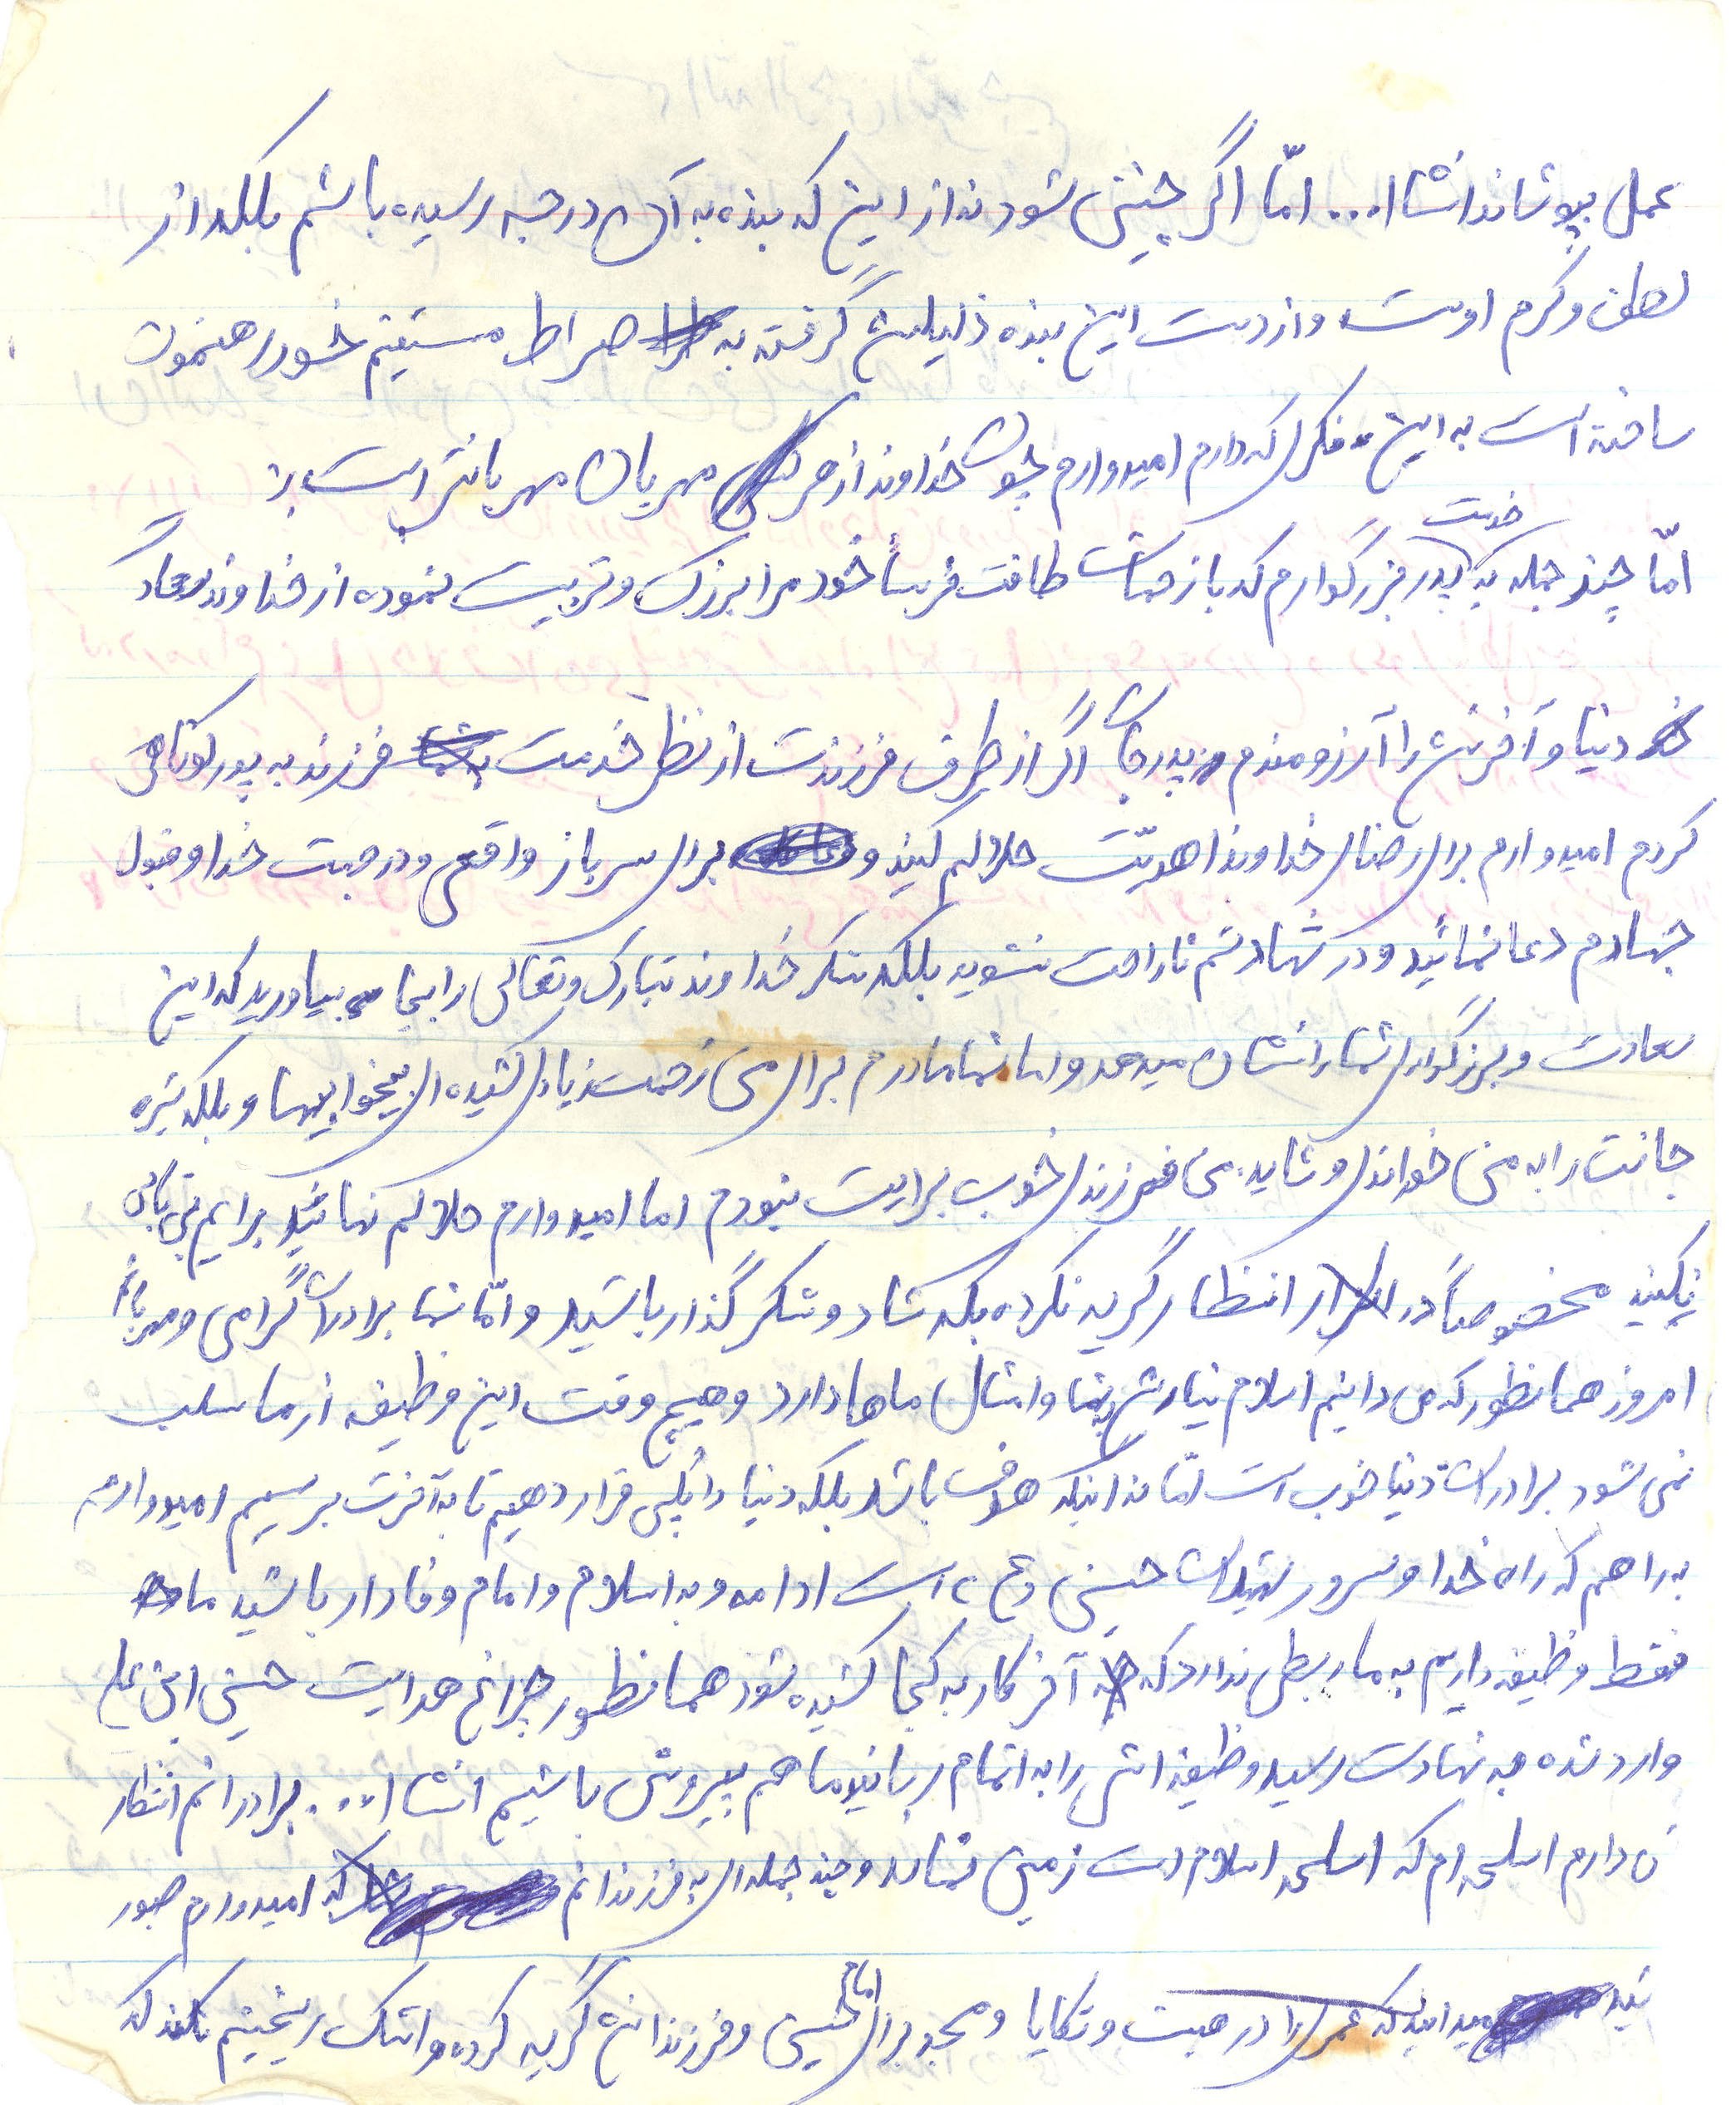 عمل بپوشاند انشاا... امّا اگر چنین شود نه از این که بنده به آن درجه رسیده باشم بلکه از
لطف و کرم اوست و از دست این بنده ذلیلش گرفته به صراط مستقیم خود رهنمون
ساخته است به این فکری که دارم امیدوارم چون خداوند از هر کسی مهربان مهربانتر است
امّا چند جمله به خدمت پدر بزرگوارم که با زحمات طاقت فرسا خود مرا بزرگ و تربیت نموده از خداوند سعادت
دنیا و آخرتش را آرزومندم پدرجان اگر از طرف فرزندت از نظر خدمت فرزند به پدر کوتاهی
کردم امیدوارم برای رضای خداوند احدیّت حلالم کنید و برای سرباز واقعی و در جهت خدا و قبول
جهادم دعا نمائید و در شهادتم ناراحت نشوید بلکه شکر خداوند تبارک و تعالی را بجا بیاورید که این
سعادت و بزرگواری شما را نشان میدهد و اما شما مادرم برای من زحمت زیادی کشیده ای بیخوابیها و بلکه شیره
جانت را به من خوراندی و شاید من فرزندی خوب برایت نبودم اما امیدوارم حلالم نمائید برایم بی تابی
نکنید مخصوصاً در انتظار گریه نکرده بلکه شاد و شکر گذار باشید و امّا شما برادران گرامی و مهربانم
امروز همانطور که می دانیم اسلام نیازش به شما و امثال ماها دارد و هیچ وقت این وظیفه از ما سلب
نمی شود برادران دنیا خوب است امّا نه اینکه هدف باشد بلکه دنیا را پلی قرار دهیم تا به آخرت برسیم امیدوارم
به راهم که راه خدا و سرور شهیدان حسین (ع) است ادامه و به اسلام و امام وفادار باشید ما
فقط وظیفه داریم به ما ربطی ندارد که آخر کار به کجا کشیده شود همانطور چراغ هدایت حسین ابن علی
وارد شده و به شهادت رسید و وظیفه اش را به اتمام رساند ما هم پیروش باشیم انشاا... برادرانم انتظار
دارم اسلحه ام که اسلحه اسلام است زمین نماند و چند جمله ای به فرزندانم که امیدوارم صبور
میدانید که عمری را در هیئت و تکایا و مسجد برای امام حسین و فرزندانش گریه کرده و اشک ریختیم نکند که